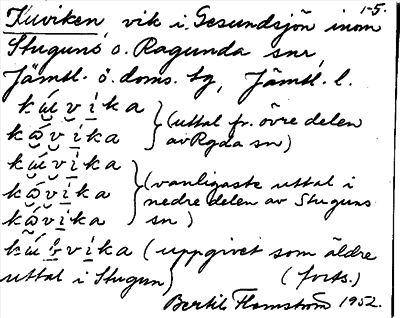 1-5.
Kuviken, vik i Gesundsjön inom
Stuguns o. Ragunda snr,
Jämtl. ö. doms. tg, Jämtl. l.
(uttal fr. övre delen
av Rgda sn)
(vanligaste uttal i
nedre delen av Stuguns
sn)
(uppgivet som äldre
uttal i Stugun)
(forts.)
Bertil Flemström 1952.